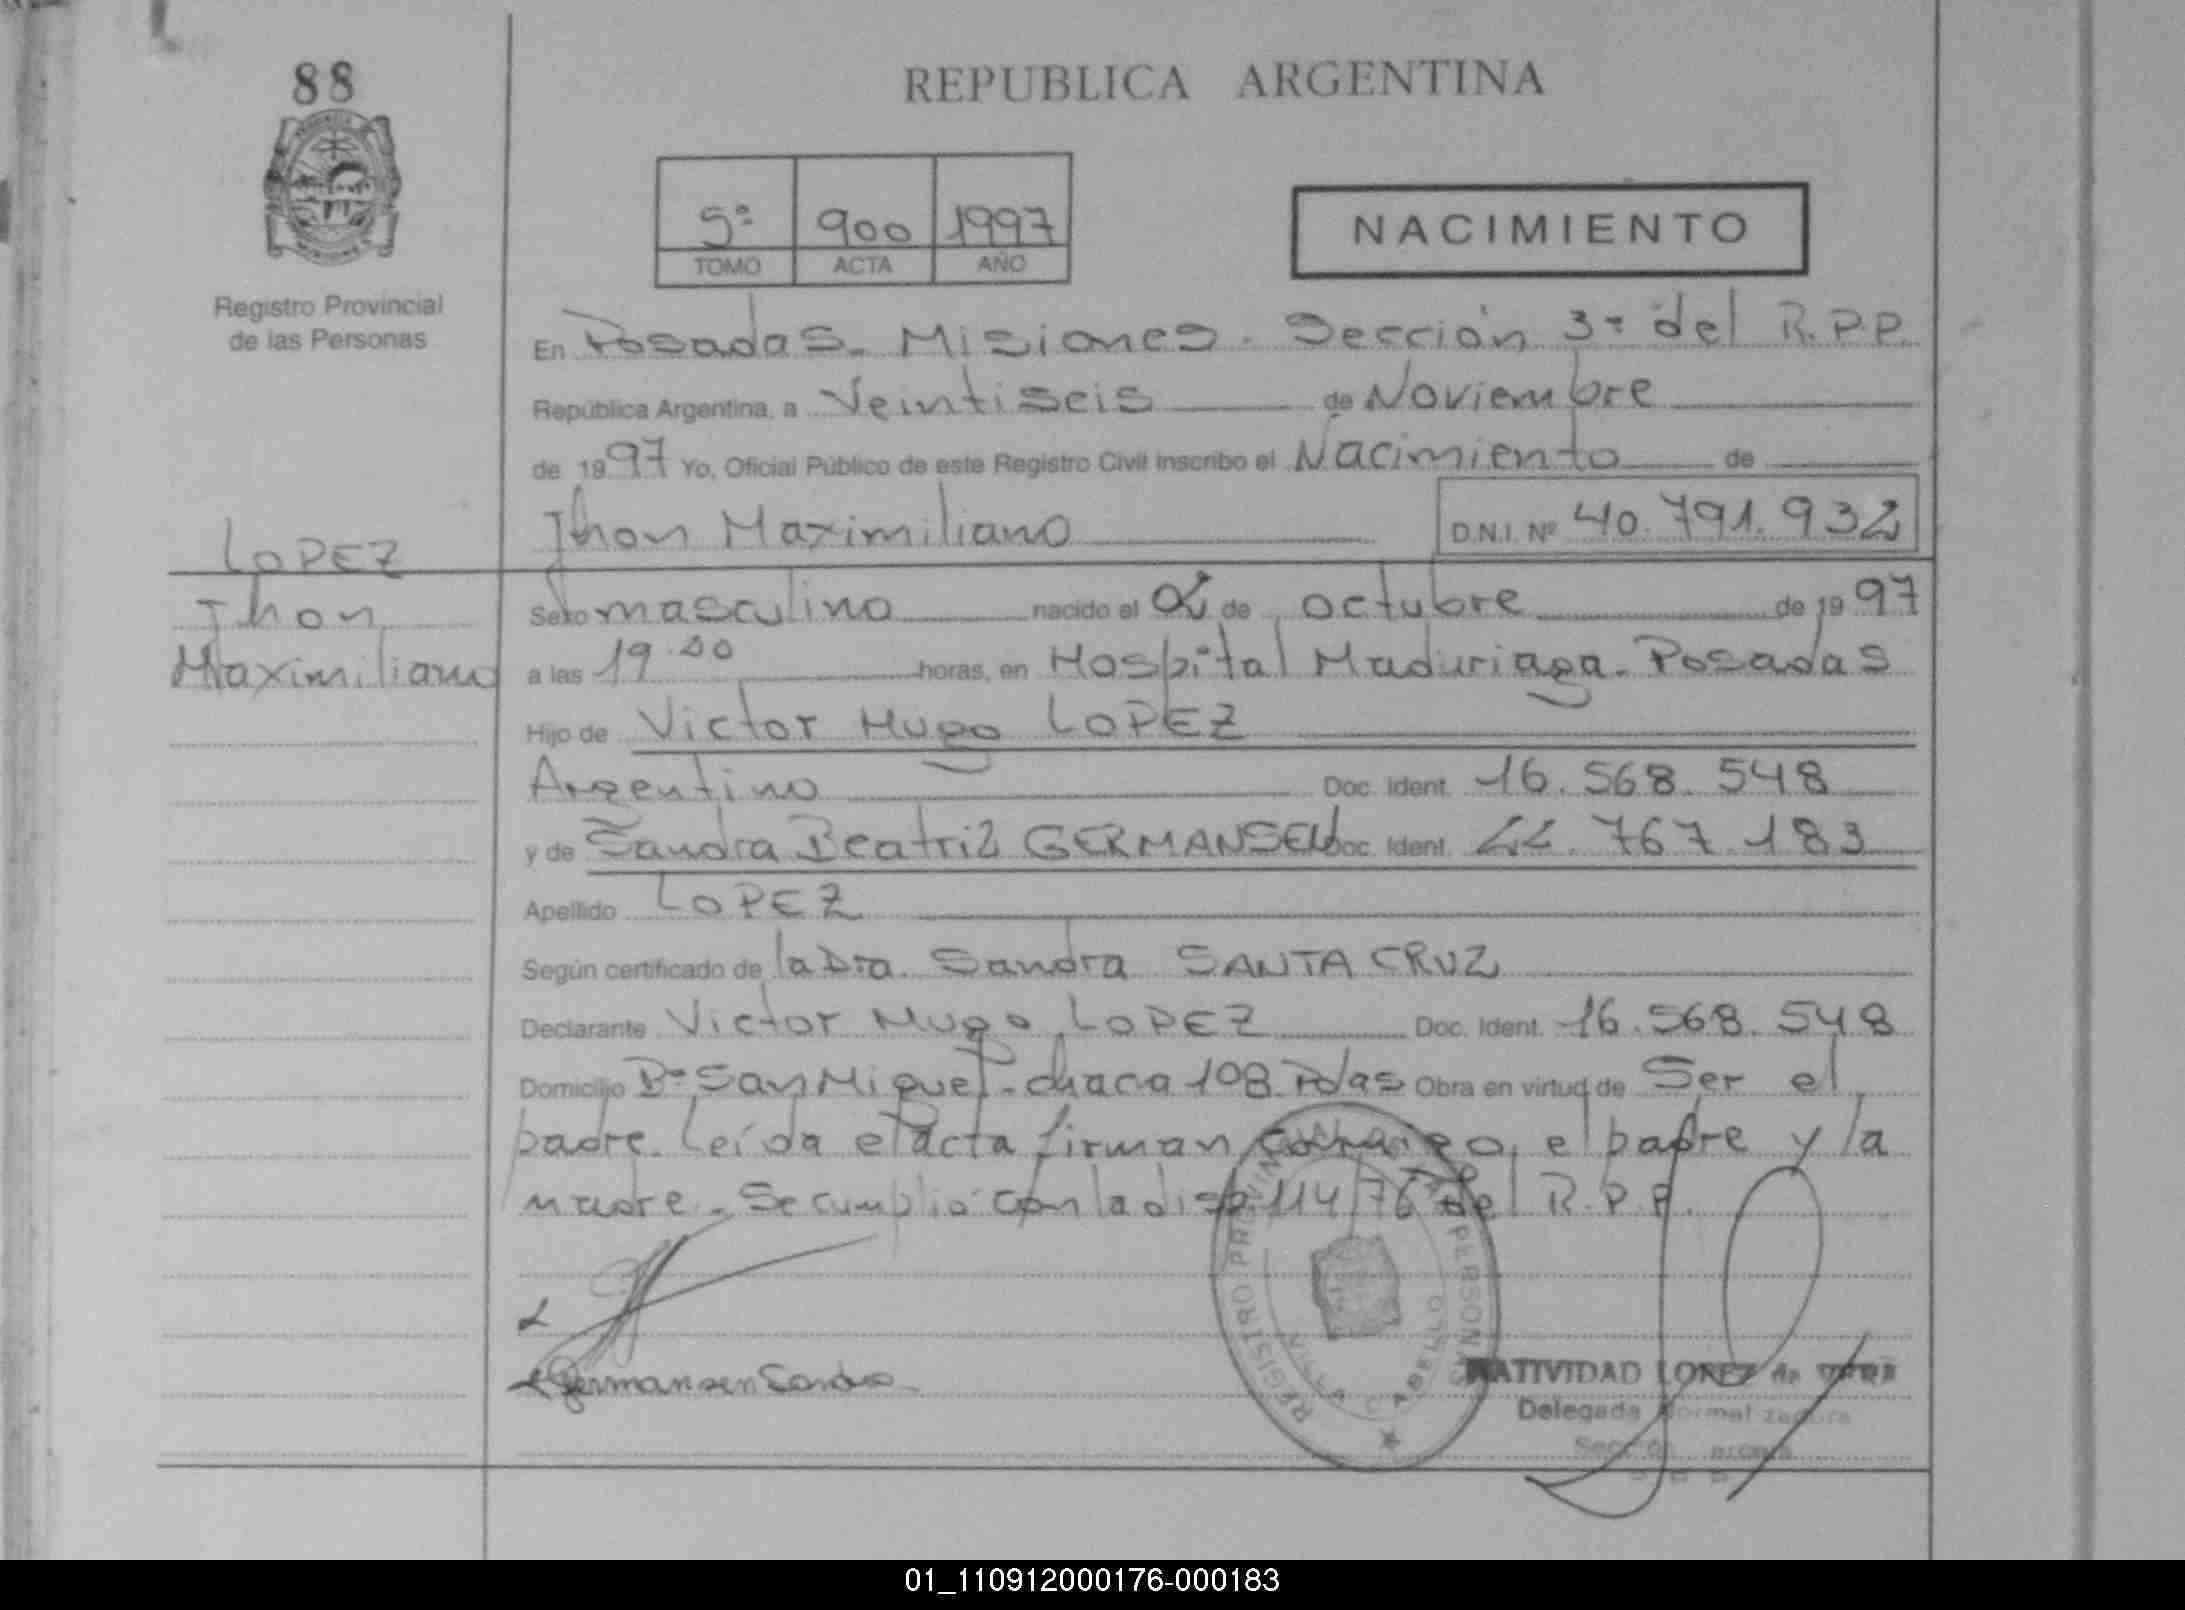 88
REPUBLICA ARGENTINA
5ª 900 1997
TOMO ACTA AÑO
NACIMIENTO
Registro Provincial
de las Personas
En Posadas - Misiones. Sección 3ª del R.P.P.
República Argentina, a Veintiseis de Noviembre
de 1997 Yo, Oficial Público de este Registro Civil inscribo el Nacimiento de
Jhon Maximiliano D.N.I. Nº 40.791.932
LOPEZ
Jhon
Maximiliano
Sexo masculino nacido el de octubre de 1997
a las 19.00 horas, en Hospital Maduriaga - Posadas
Hijo de Victor Hugo LOPEZ
Argentino Doc. Ident. 16.568.548
y de Sandra Beatriz GERMANSEN Doc. Ident. 22.767.183
Apellido LOPEZ
Según certificado de la Dra. Sandra SANTA CRUZ
Declarante Victor Hugo LOPEZ Doc. Ident. 16.568.548
Domicilio Bº San Miguel - chacra 108 Pdas Obra en virtud de Ser el
padre. Leída el acta firman conmigo, el padre y la
madre. Se cumplió con la disp. 114/76 del R.P.P.
Germansen Sandra
REGISTRO PROVINCIAL DE LAS PERSONAS
NATIVIDAD LOPEZ de
Delegada Normalizadora
Sección
01_110912000176-000183